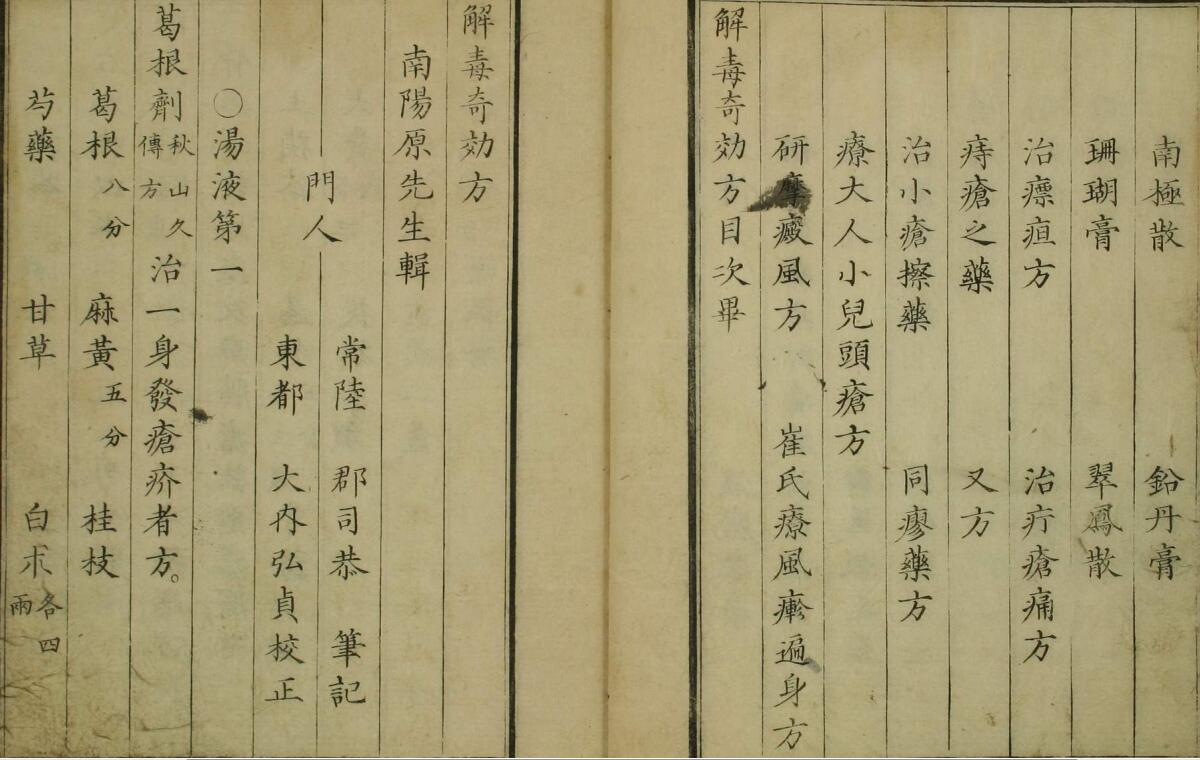 南極散 鉛丹膏
珊瑚膏 翠鳳散
治瘭疽方 治疔瘡痛方
痔瘡之藥 又方
治小瘡擦藥 同瘳藥方
療大人小兒頭瘡方
研摩癜風方 崔氏療風瘀遍身方
解毒奇効方目次畢
解毒奇効方
南陽原先生輯
門人
常陸 郡司恭 筆記
東都 大内弘貞校正
○湯液第一
葛根劑秋山久傳方治一身發瘡疥者方。
葛根八分 麻黃五分 桂枝
芍藥 甘草 白朮各四兩